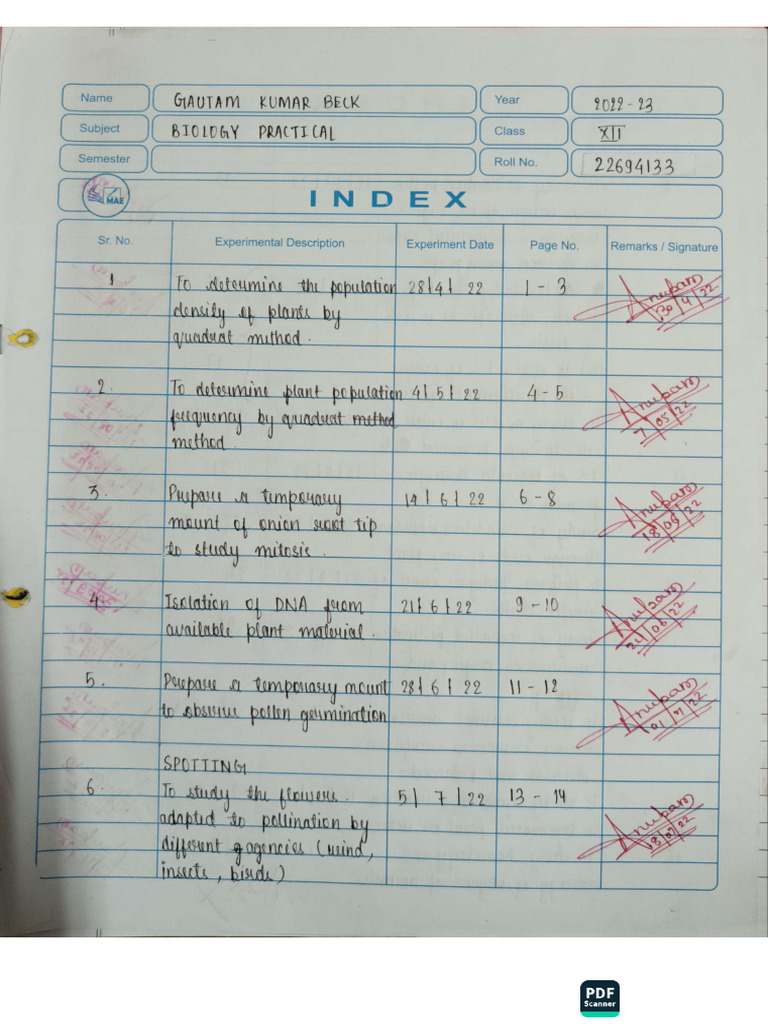 Name GAUTAM KUMAR BECK Year 2022-23
Subject BIOLOGY PRACTICAL Class XII
Semester Roll No. 22694133
MAE INDEX
Sr. No. Experimental Description Experiment Date Page No. Remarks / Signature
1. To determine the population 28/4/22 1-3 Anupam
density of plants by 30/4/22
quadrat method.
2. To determine plant population 4/5/22 4-5 Anupam
frequency by quadrat method 7/05/22
method.
3. Prepare a temporary 14/6/22 6-8 Anupam
mount of onion root tip 18/06/22
to study mitosis.
4. Isolation of DNA from 21/6/22 9-10 Anupam
available plant material. /06/22
5. Prepare a temporary mount 28/6/22 11-12 Anupam
to observe pollen germination 01/7/22
SPOTTING
6. To study the flowers 5/7/22 13-14 Anupam
adapted to pollination by 8/07/22
different agencies (wind,
insects, birds)
PDF
Scanner